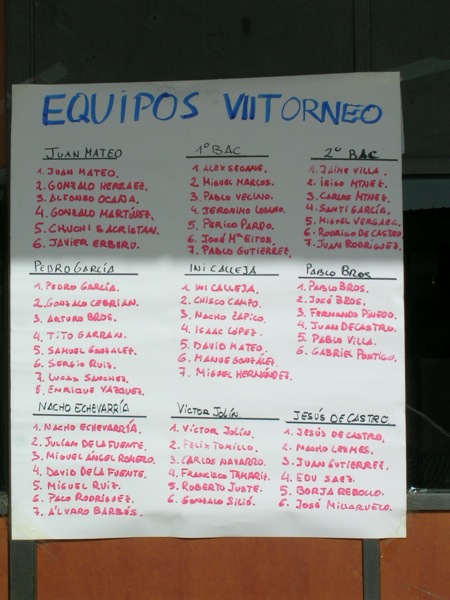 EQUIPOS VII TORNEO
JUAN MATEO
1. JUAN MATEO.
2. GONZALO HERRAEZ.
3. ALFONSO OCAÑA.
4. GONZALO MARTÍNEZ.
5. CHUCHI SACRISTAN.
6. JAVIER ERBURU.
1º BAC
1. ALEX SEOANE.
2. MIGUEL MARCOS.
3. PABLO VECINO.
4. JERONIMO LOZANO.
5. PERICO PARDO.
6. JOSÉ Mª EITOS.
7. PABLO GUTIERREZ.
2º BAC
1. JAIME VILLA.
2. IÑIGO MTNEZ.
3. CARLOS MTNEZ.
4. SANTI GARCÍA.
5. MIGUEL VERGARA.
6. RODRIGO DE CASTRO.
7. JUAN RODRÍGUEZ.
PEDRO GARCÍA
1. PEDRO GARCÍA.
2. GONZALO CEBRIAN.
3. ARTURO BROS.
4. TITO GARRAN.
5. SAMUEL GONZALEZ.
6. SERGIO RUIZ.
7. LUCAS SANCHEZ.
8. ENRIQUE VÁZQUEZ.
INI CALLEJA
1. INI CALLEJA.
2. CHISCO CAMPO.
3. NACHO ZAPICO.
4. ISAAC LÓPEZ.
5. DAVID MATEO.
6. MANUE GONZÁLEZ.
7. MIGUEL HERNÁNDEZ.
PABLO BROS
1. PABLO BROS.
2. JOSÉ BROS.
3. FERNANDO PINEDO.
4. JUAN DE CASTRO.
5. PABLO VILLA.
6. GABRIEL PONTIGO.
NACHO ECHEVARRÍA
1. NACHO ECHEVARRÍA.
2. JULIAN DE LA FUENTE.
3. MIGUEL ÁNGEL ROMERO.
4. DAVID DE LA FUENTE.
5. MIGUEL RUIZ.
6. PACO RODRÍGUEZ.
7. ÁLVARO BARBÓS.
VÍCTOR JOLÍN.
1. VÍCTOR JOLÍN.
2. FELIX TOMILLO.
3. CARLOS NAVARRO.
4. FRANCISCO TAMARIZ.
5. ROBERTO JUSTE.
6. GONZALO SILIÓ.
JESÚS DE CASTRO.
1. JESÚS DE CASTRO.
2. NACHO LESMES.
3. JUAN GUTIERREZ.
4. EDU SAEZ.
5. BORJA REBOLLO.
6. JOSÉ MILLARUELO.